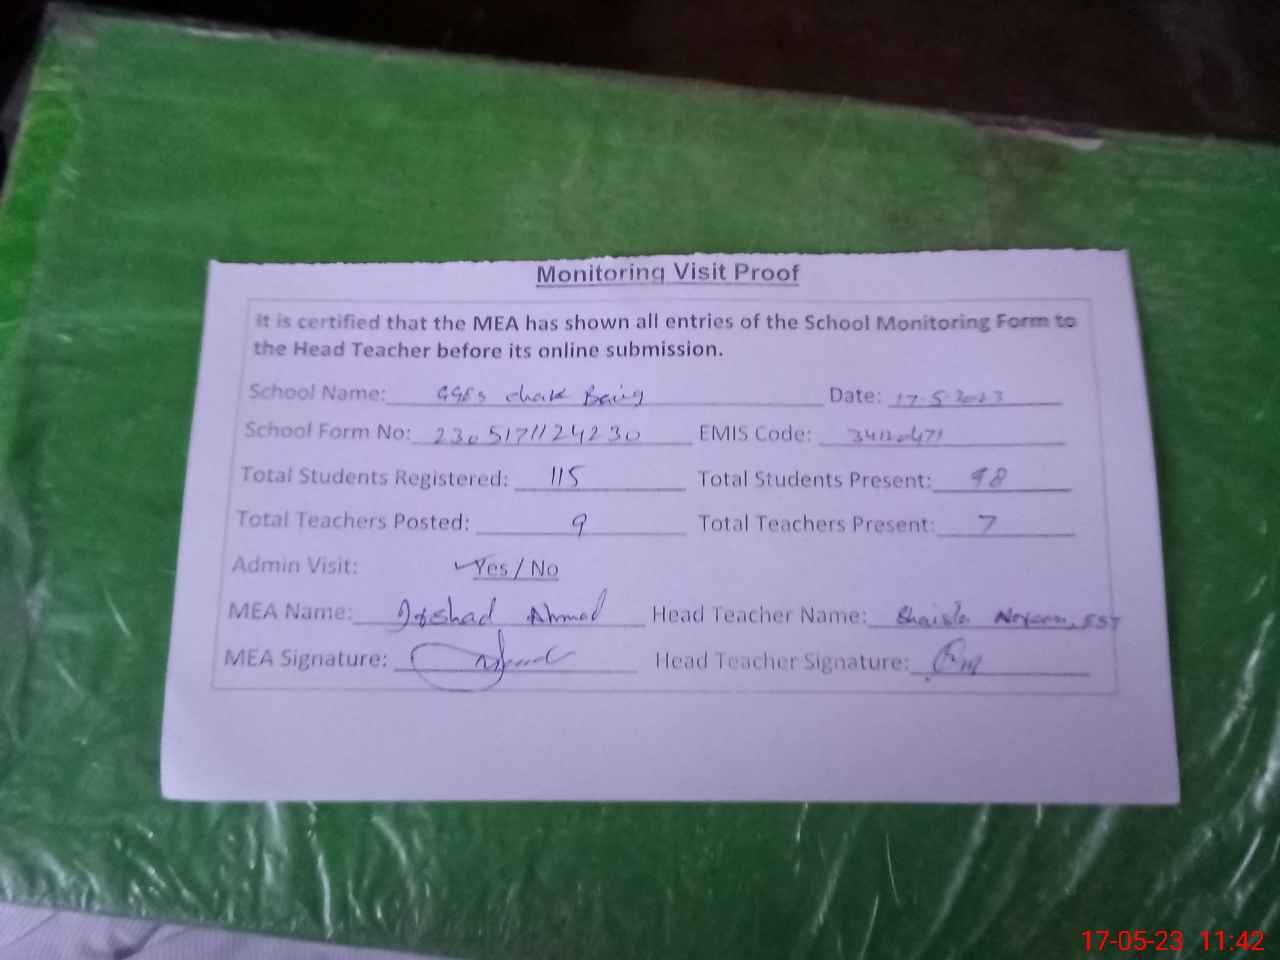 Monitoring Visit Proof
It is certified that the MEA has shown all entries of the School Monitoring Form to
the Head Teacher before its online submission.
School Name: GGES chak Baig Date: 17-5-2023
School Form No: 2305171124230 EMIS Code:
Total Students Registered: 115 Total Students Present: 98
Total Teachers Posted: 9 Total Teachers Present: 7
Admin Visit: Yes / No
MEA Name: Ahmad Head Teacher Name: Shaista EST
MEA Signature: Head Teacher Signature:
17-05-23 11:42